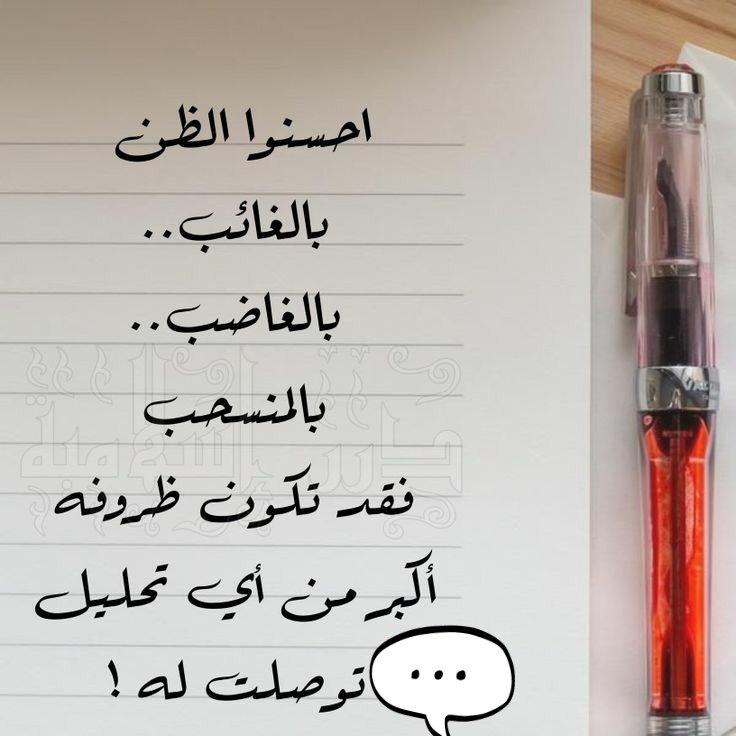 احسنوا الظن
بالغائب..
بالغاضب..
بالمنسحب
فقد تكون ظروفه
أكبر من أي تحليل
توصلت له !
...